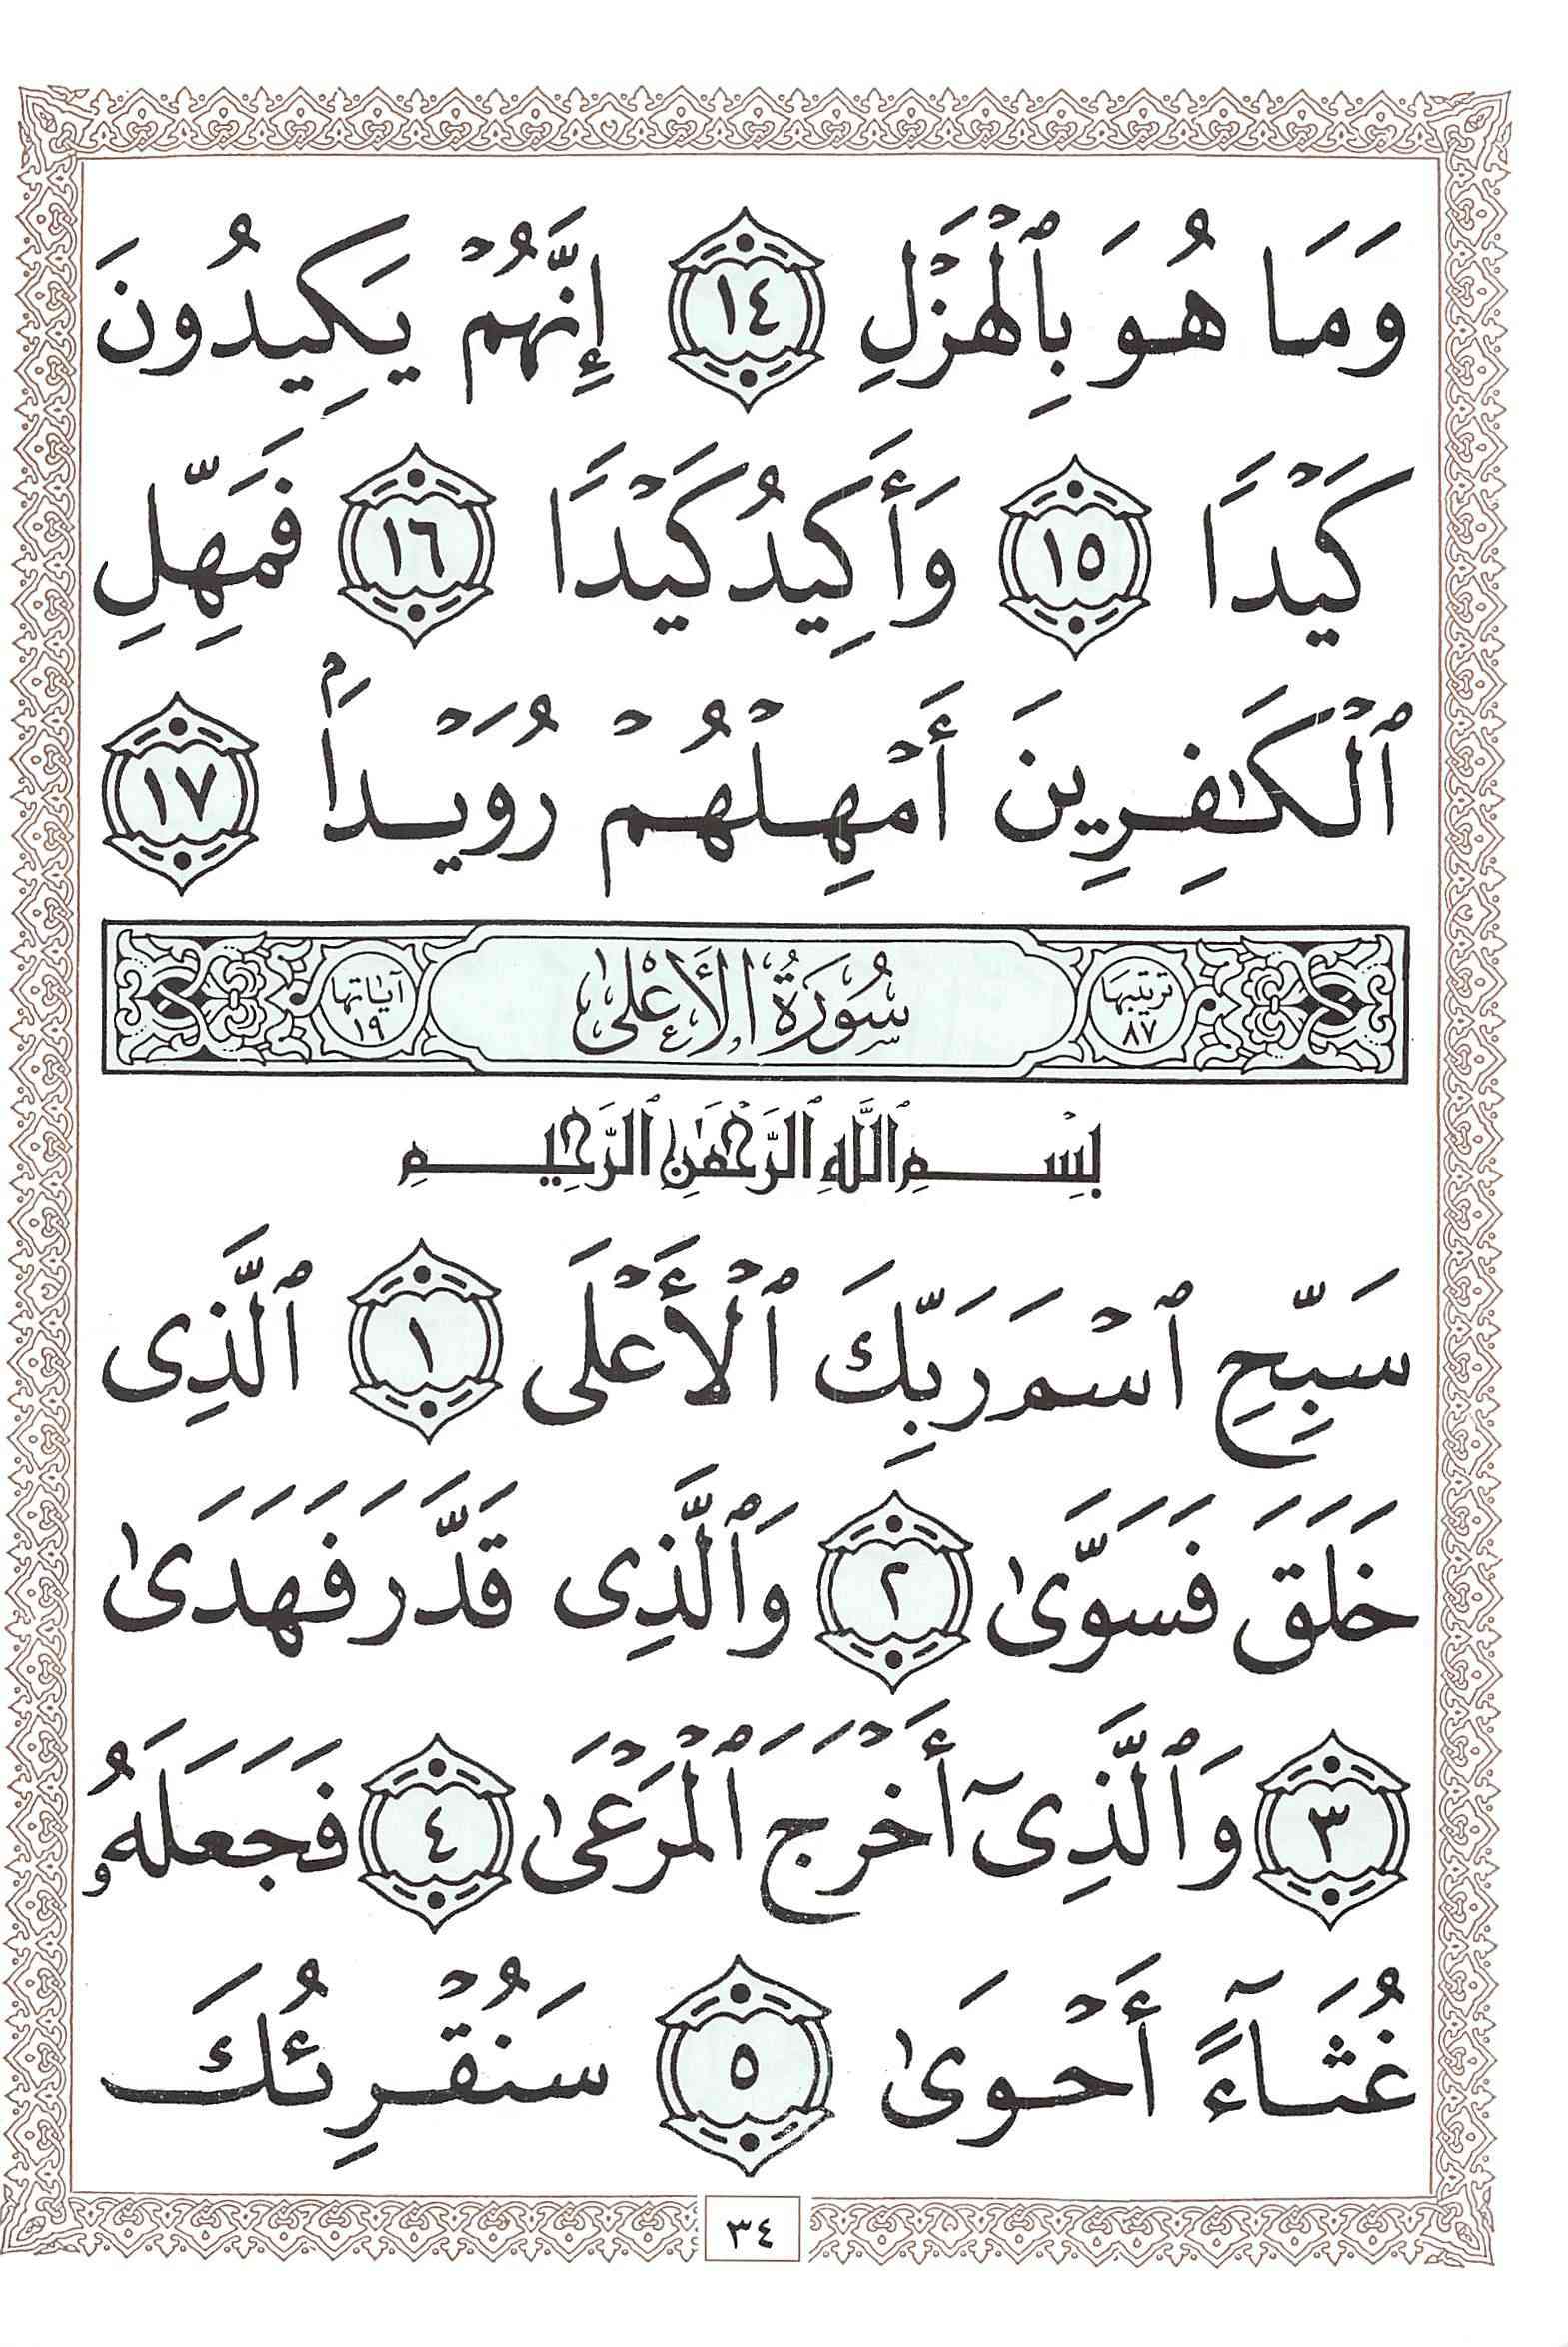 وَمَا هُوَ بِٱلْهَزْلِ ١٤ إِنَّهُمْ يَكِيدُونَ
كَيْدًا ١٥ وَأَكِيدُ كَيْدًا ١٦ فَمَهِّلِ
ٱلْكَـٰفِرِينَ أَمْهِلْهُمْ رُوَيْدَۢا ١٧
ترتيبها ٨٧ سُورَةُ الأَعْلى آياتها ١٩
بِسْمِ ٱللَّهِ ٱلرَّحْمَـٰنِ ٱلرَّحِيمِ
سَبِّحِ ٱسْمَ رَبِّكَ ٱلْأَعْلَى ١ ٱلَّذِى
خَلَقَ فَسَوَّىٰ ٢ وَٱلَّذِى قَدَّرَ فَهَدَىٰ
٣ وَٱلَّذِىٓ أَخْرَجَ ٱلْمَرْعَىٰ ٤ فَجَعَلَهُۥ
غُثَآءً أَحْوَىٰ ٥ سَنُقْرِئُكَ
٣٤